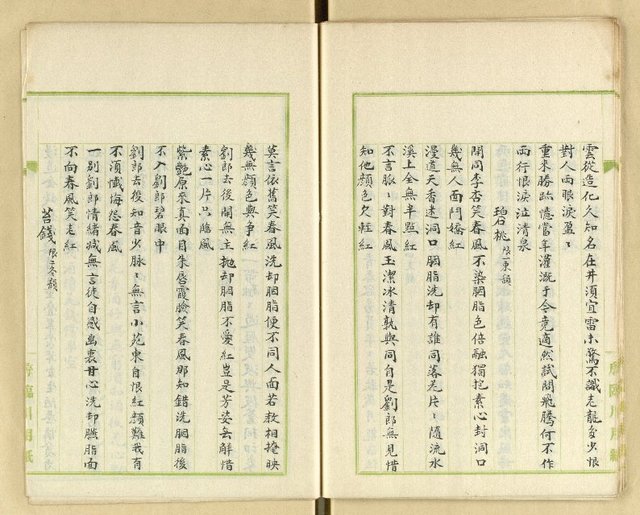 雲從造化久知名在井須宜雷未驚不識老龍多少恨
對人兩眼淚盈〻
重來勝跡憶當年灌溉于今竟適然試問飛騰何不作
雨行恨淚泣清泉
碧桃 限一東韻
開同李杏笑春風不染胭脂色倍融獨抱素心封洞口
幾無人面鬥嬌紅
漫道天香迷洞口胭脂洗却有誰同落花片〻隨流水
溪上全無半點紅
不言脉〻對春風玉潔冰清孰與同自是劉郎無見惜
知他顏色欠輕紅
莫言依舊笑春風洗却胭脂便不同人面若教相掩映
幾無顏色與爭紅
劉郎去後開無主拋却胭脂不愛紅豈是芳姿無解惜
素心一片只臨風
紫艷原來真面目朱唇霞臉笑春風那知錯洗胭脂後
不入劉郎碧眼中
劉郎去後知音少脉〻無言小苑東自恨紅顏難我有
不須懺悔怨春風
一別劉郎情緒減無言徒自感幽衷甘心洗却臙脂面
不向春風笑老紅
苔錢 限二冬韻
臨川用紙